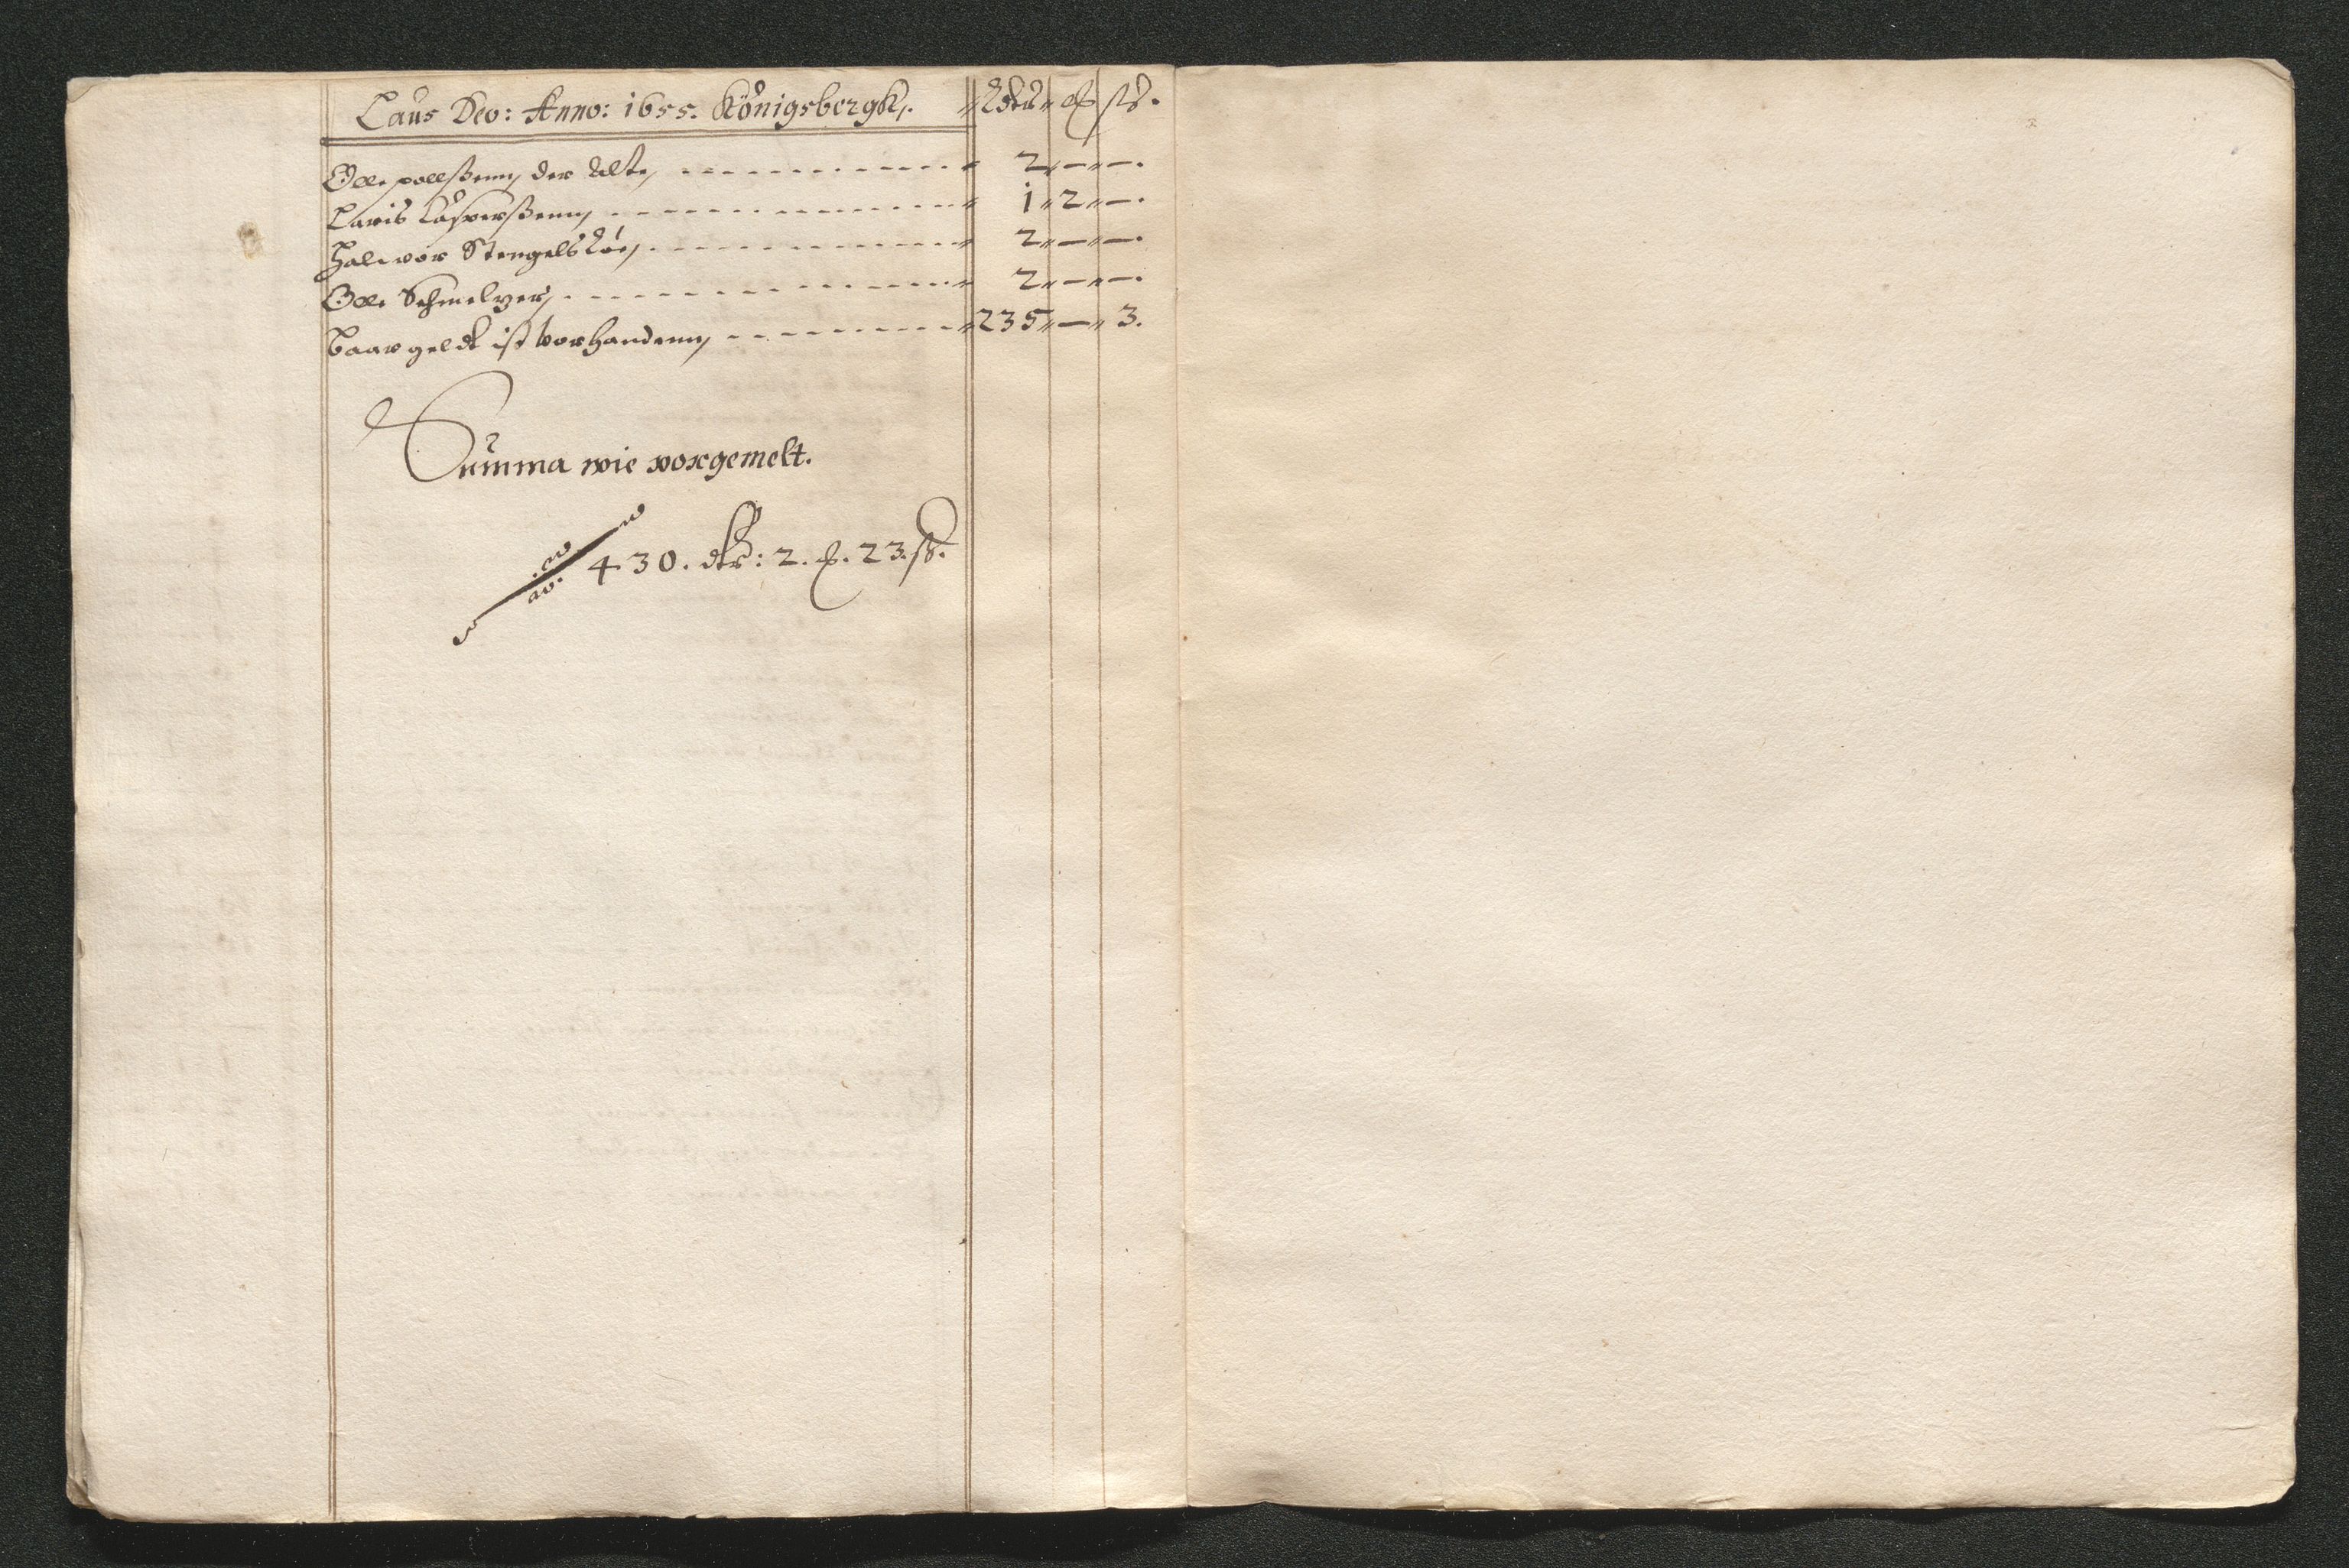 Laus Deo: Anno: 1655. Königsbergk. Rdtlr ß.
Olle pollßenn, der Elte, 2 — —.
Laris Casperßenn, 1 2 —.
Hallvor Stengels 2 — —.
Olle Schmeltzer, 2 — —.
baar geldt ist vorhandenn, 235 — 3.
Summa wie vorgemelt.
430. dlr: 2. 23. ß.